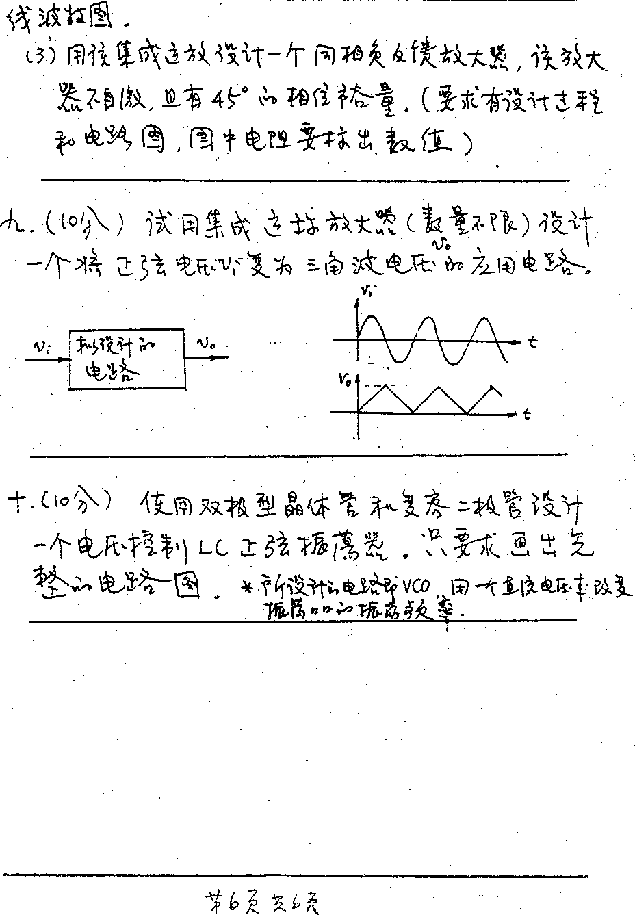 线波特图.
(3) 用该集成运放设计一个同相负反馈放大器, 该放大
器不自激, 且有45°的相位裕量. (要求有设计过程
和电路图, 图中电阻要标出数值)
九. (10分) 试用集成运标放大器(数量不限)设计
一个将正弦电压Vi变为三角波电压Vo的应用电路。
Vi
拟设计的
电路
Vo
Vi
t
Vo
t
十. (10分) 使用双极型晶体管和变容二极管设计
一个电压控制LC正弦振荡器. 只要求画出完
整的电路图.
*所设计的电路即VCO, 用一个直流电压来改变
振荡器的振荡频率.
第6页 共6页